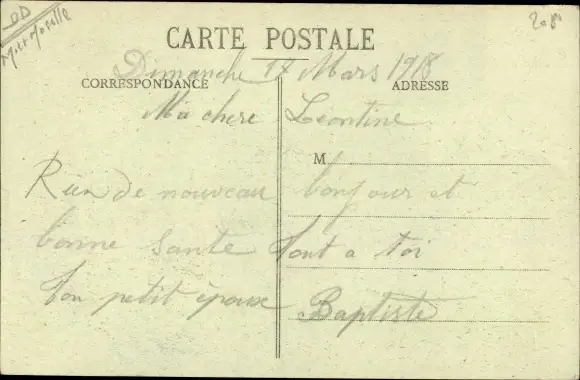 CARTE POSTALE
Dimanche 17 Mars 1918
CORRESPONDANCE
ADRESSE
Ma chere Léontine
M
Rien de nouveau bonjour et
bonne santé tout a toi
Ton petit époux Baptiste